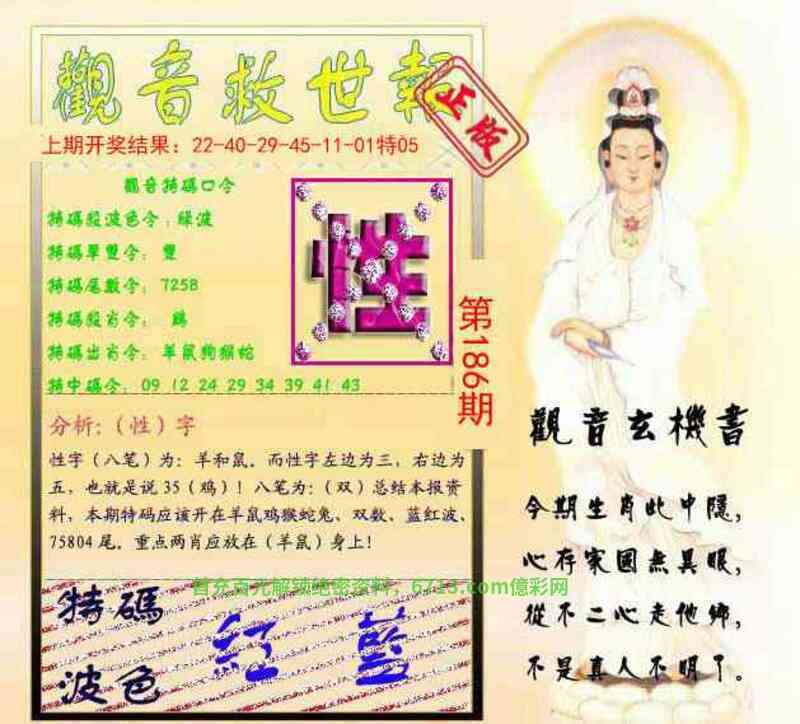 觀音救世報
正版
上期开奖结果：22-40-29-45-11-01特05
觀音特碼口令
特碼殺波色令：綠波
特碼單雙令： 雙
特碼尾數令： 7258
特碼殺肖令： 鷄
特碼出肖令： 羊鼠狗猴蛇
特中碼令： 09 12 24 29 34 39 41 43
性
第186期
分析:（性）字
性字（八笔）为：羊和鼠。而性字左边为三，右边为
五，也就是说 35（鸡）！八笔为:（双）总结本报资
料，本期特码应该开在羊鼠鸡猴蛇兔、双数、蓝红波、
75804 尾。重点两肖应放在（羊鼠）身上!
首充百元解锁绝密资料，6713.com億彩网
特碼
波色
紅 藍
觀音玄機書
今期生肖此中隱，
心存家國無異眼，
從不二心走他鄉，
不是真人不明了。